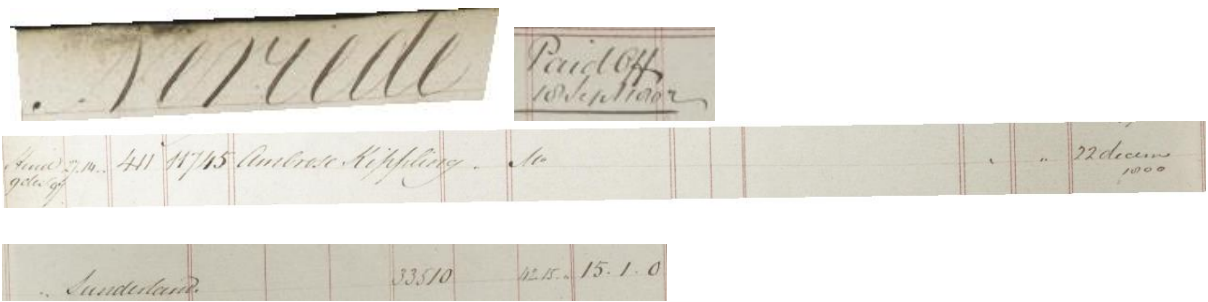 Nereide
Paid Off
18 Sep 1802
411 11745 Ambrose Kippling
22 decem
1800
Sunderland. 33510 42.15.. 15.1.0